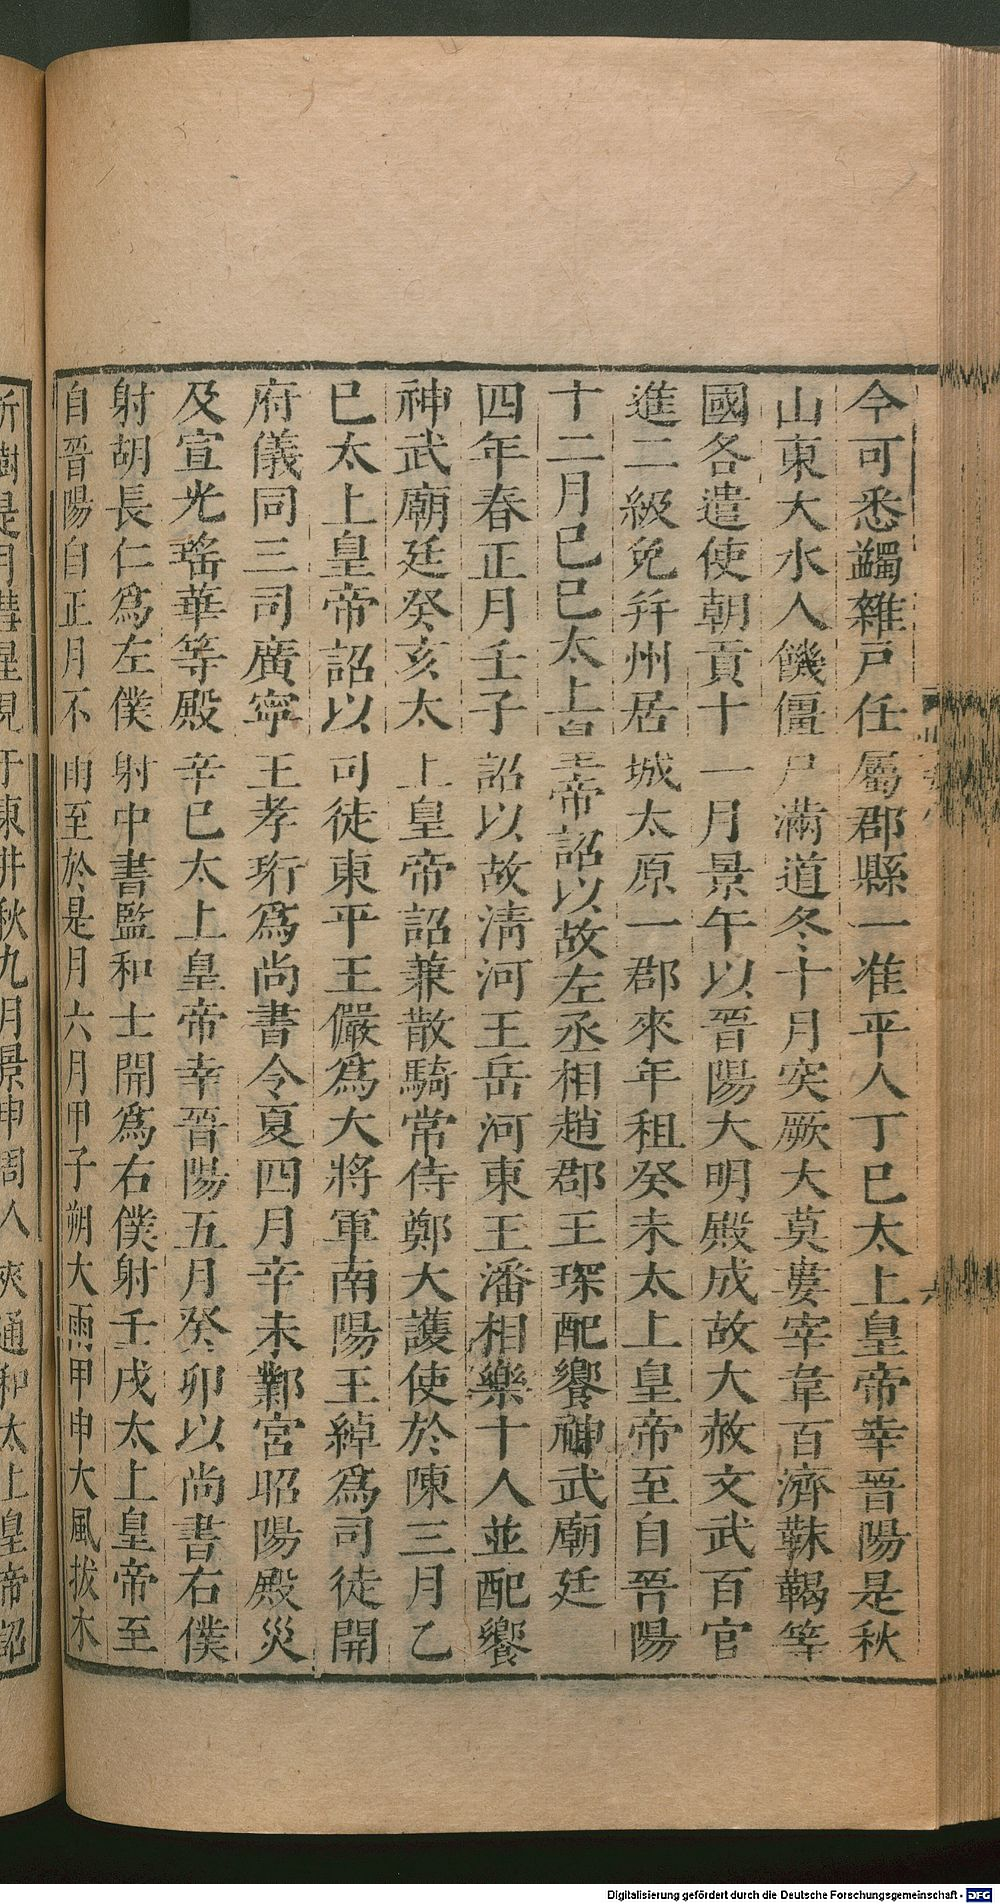 今可悉蠲雜戸任屬郡縣一准平人丁巳太上皇帝幸晉陽是秋
山東大水人饑僵尸滿道冬十月突厥大莫婁宰韋百濟靺鞨等
國各遣使朝貢十一月景午以晉陽大明殿成故大赦文武百官
進二級免并州居城太原一郡來年租癸未太上皇帝至自晉陽
十二月己巳太上皇帝詔以故左丞相趙郡王琛配饗神武廟廷
四年春正月壬子詔以故清河王岳河東王潘相樂十人並配饗
神武廟廷癸亥太上皇帝詔兼散騎常侍鄭大護使於陳三月乙
巳太上皇帝詔以司徒東平王儼爲大將軍南陽王綽爲司徒開
府儀同三司廣寧王孝珩爲尚書令夏四月辛未鄴宮昭陽殿災
及宣光瑤華等殿辛巳太上皇帝幸晉陽五月癸卯以尚書右僕
射胡長仁爲左僕射中書監和士開爲右僕射壬戌太上皇帝至
自晉陽自正月不雨至於是月六月甲子朔大雨甲申大風拔木
折樹是月彗星見于東井秋九月景申周人 通和太上皇帝詔
Digitalisierung gefördert durch die Deutsche Forschungsgemeinschaft - DFG